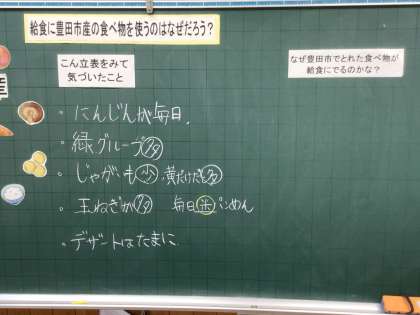 給食に豊田市産の食べ物を使うのはなぜだろう？
こん立表をみて
気づいたこと
なぜ豊田市でとれた食べ物が
給食にでるのかな？
・にんじんが毎日、
・緑グループ多
・じゃがいも少 黄だけだと多
・玉ねぎが多 毎日米パンめん
・デザートはたまに
産